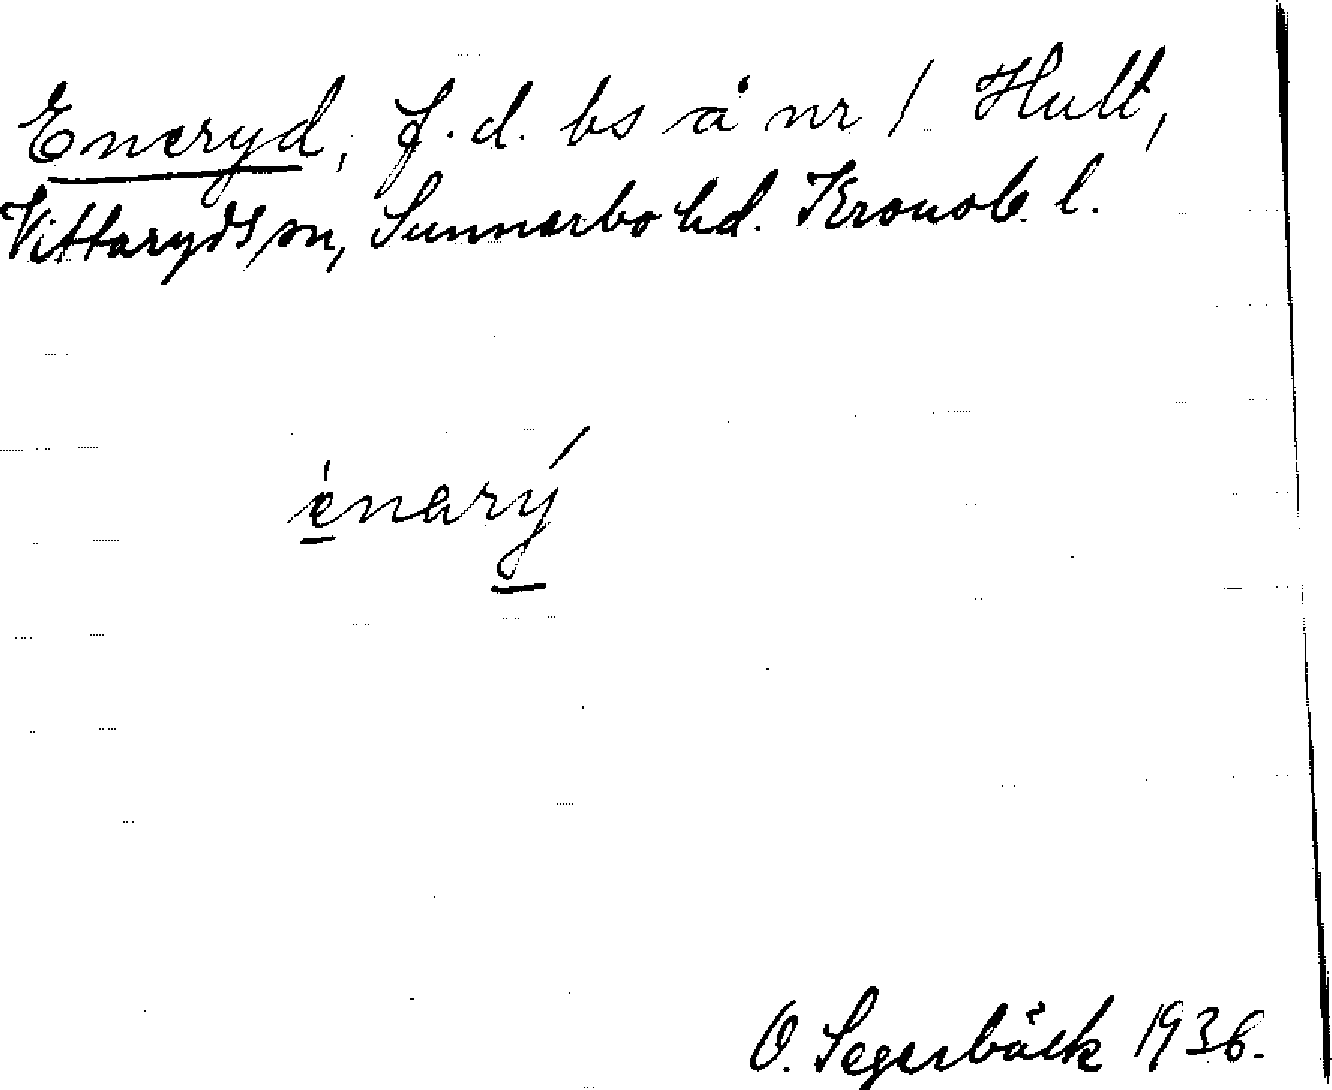 Eneryd, f.d. bs å nr 1 Hult,
Vittaryds sn, Sunnerbo hd. Kronob. l.
ènarý
O. Segerbäck 1936.